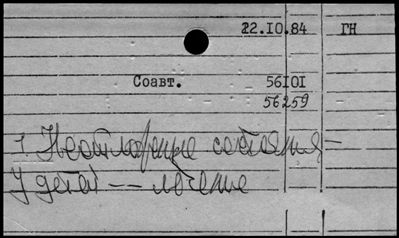 22.IO.84 ГН
Соавт. 56IOI
56259
1. Неотложные состояния –
У детей –– лечение